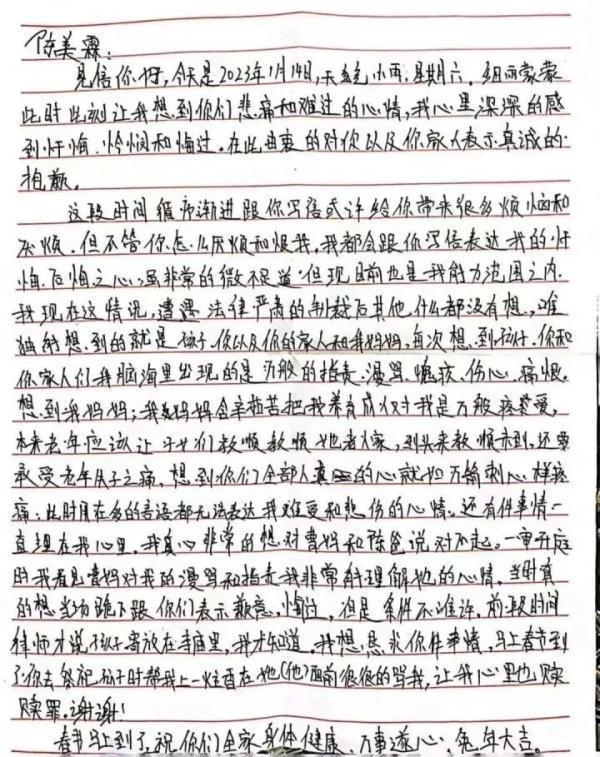 陈美霖:
见信你好,今天是2023年1月14日,天气小雨,星期六,细雨蒙蒙
此时此刻让我想到你们悲痛和难过的心情,我心里深深的感
到忏悔、怜悯和悔过。在此由衷的对你以及你家人表示真诚的
抱歉。
这段时间循序渐进跟你写信或许给你带来很多烦恼和
厌烦,但不管你怎么厌烦和恨我,我都会跟你写信表达我的忏
悔、后悔之心,虽非常的微不足道但现目前也是我能力范围之内。
我现在这情况,遭受法律严肃的制裁后其他什么都没有想,唯
独能想到的就是孩子、你以及你的家人和我妈妈,每次想到孩子、你和
你家人们我脑海里出现的是万般的指责、漫骂、愧疚、伤心、痛恨。
想到我妈妈;我妈妈含辛茹苦把我养育成人对我是万般疼爱,
本来老年应该让子女们孝顺孝顺她老人家,到头来孝顺未到,还要
承受老年失子之痛,想到你们全部人的心就如万箭刺心一样疼
痛;此时用在多的言语都无法表达我难受和悲伤的心情。还有件事情一
直埋在我心里,我真心非常的想对曹妈和陈爸说对不起。一审开庭
时我看见曹妈对我的漫骂和指责我非常能理解她的心情,当时真
的想当场跪下跟你们表示歉意、悔过,但是条件不准许,前段时间
律师才说孩子寄放在寺庙里,我才知道,我想恳求你件事情,马上春节到
了你去祭祀孩子时帮我上一炷香在她(他)面前很很的骂我,让我心里也赎
赎罪。谢谢!
春节马上到了,祝你们全家身体健康、万事遂心、兔年大吉。